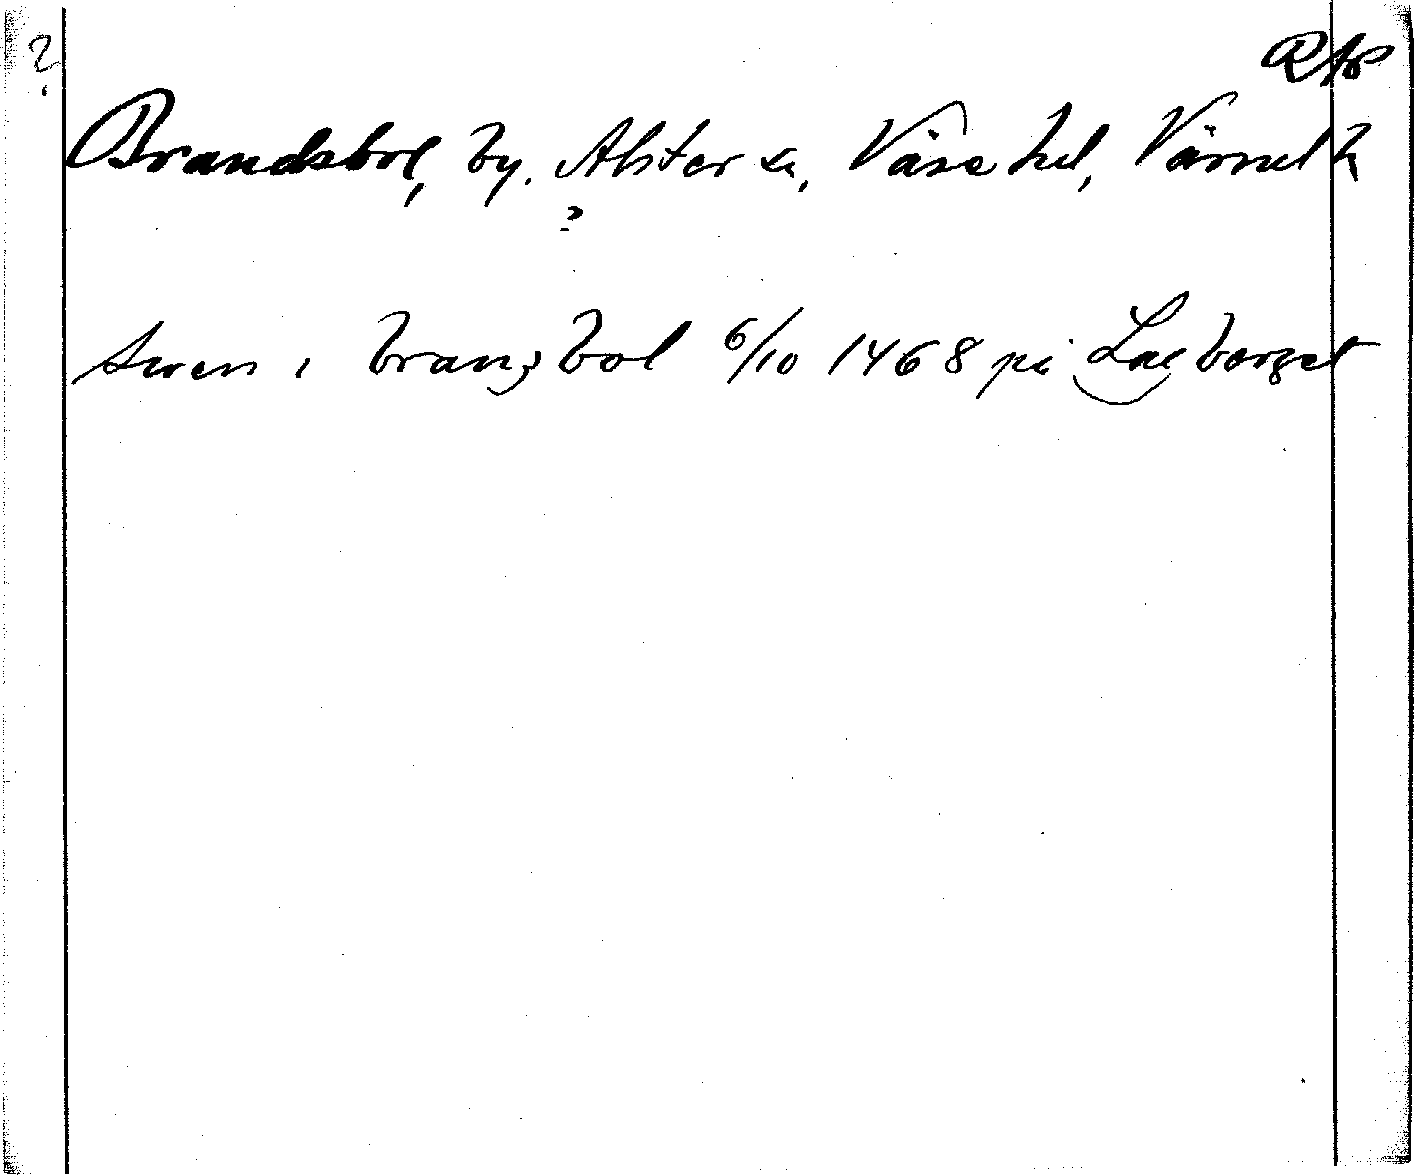 ?
RAp
Brandsbol, by. Alster sn, Väse hd, Värml
?
swen i branzbol 6/10 1468 på Lagberget